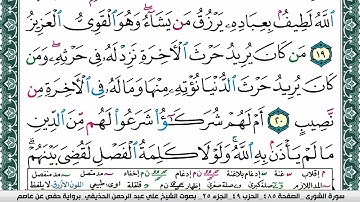 ٱللَّهُ لَطِيفٌۢ بِعِبَادِهِۦ يَرْزُقُ مَن يَشَآءُ ۖ وَهُوَ ٱلْقَوِىُّ ٱلْعَزِيزُ
١٩ مَن كَانَ يُرِيدُ حَرْثَ ٱلْـَٔاخِرَةِ نَزِدْ لَهُۥ فِى حَرْثِهِۦ ۖ وَمَن
كَانَ يُرِيدُ حَرْثَ ٱلدُّنْيَا نُؤْتِهِۦ مِنْهَا وَمَا لَهُۥ فِى ٱلْـَٔاخِرَةِ مِن
نَّصِيبٍ ٢٠ أَمْ لَهُمْ شُرَكَـٰٓؤُا۟ شَرَعُوا۟ لَهُم مِّنَ ٱلدِّينِ
مَا لَمْ يَأْذَنۢ بِهِ ٱللَّهُ ۚ وَلَوْلَا كَلِمَةُ ٱلْفَصْلِ لَقُضِىَ بَيْنَهُمْ ۗ
سورة الشورى الصفحة ٤٨٥ الحزب ٤٩ الجزء ٢٥ بصوت الشيخ علي عبد الرحمن الحذيفي برواية حفص عن عاصم